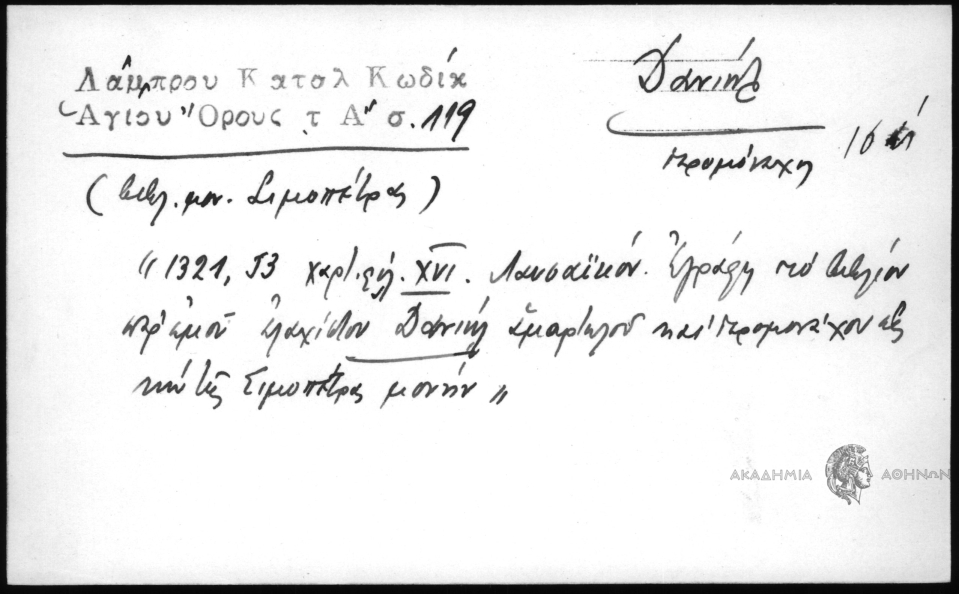 Λάμπρου Καταλ Κωδίκ
Ἁγίου Ὄρους τ Α" σ. 119
Δανιήλ
ἱερομόναχος
16
(βιβλ. μον. Σιμοπέτρας)
"1321, 53 χαρτ. φύλ. XVI. Λαυσαϊκόν. Ἐγράφη τὸ βιβλίον
παρ' ἐμοῦ ἐλαχίστου Δανιὴλ ἁμαρτωλοῦ καὶ ἱερομονάχου εἰς
τὴν τῆς Σιμοπέτρας μονήν"
ΑΚΑΔΗΜΙΑ ΑΘΗΝΩΝ